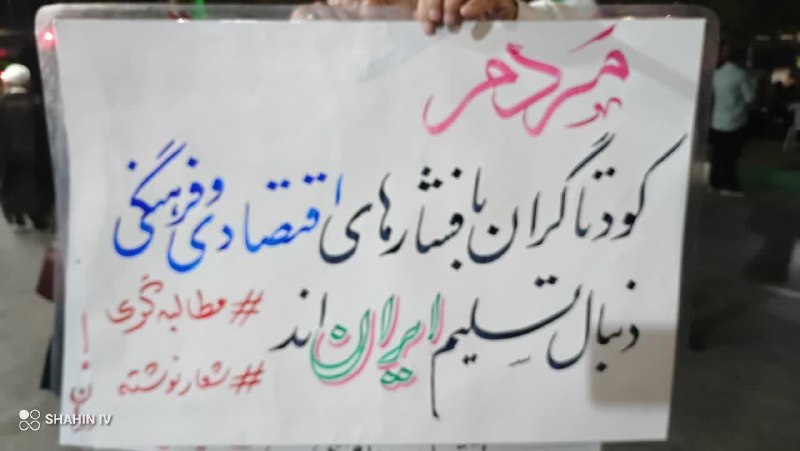 مردم
کودتاگران با فشارهای اقتصادی و فرهنگی
دنبال تسلیم ایران اند
#مطالبه‌گری
#شعارنوشته
SHAHIN IV